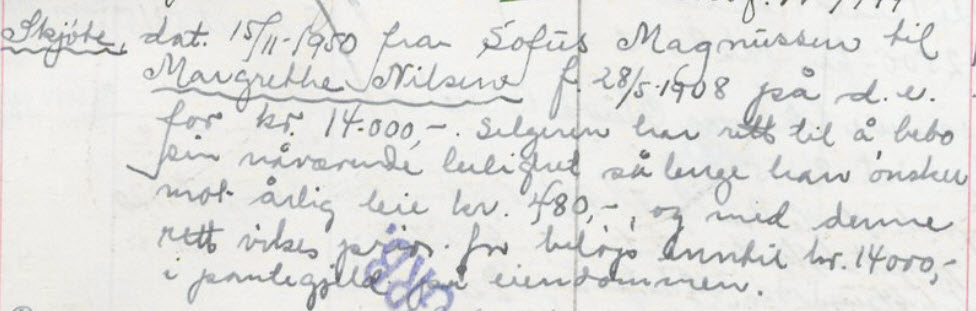 Skjöte, dat. 15/11-1950 fra Sofus Magnussen til
Margrethe Nilsen f. 28/5-1908 på d.e.
for kr. 14.000,-. Selgeren har rett til å bebo
sin nåværende leilighet så lenge han önsker
mot årlig leie kr. 480,-, og med denne
rett vikes prior. for beløp inntil kr. 14000,-
i pantegjeld på eiendommen.